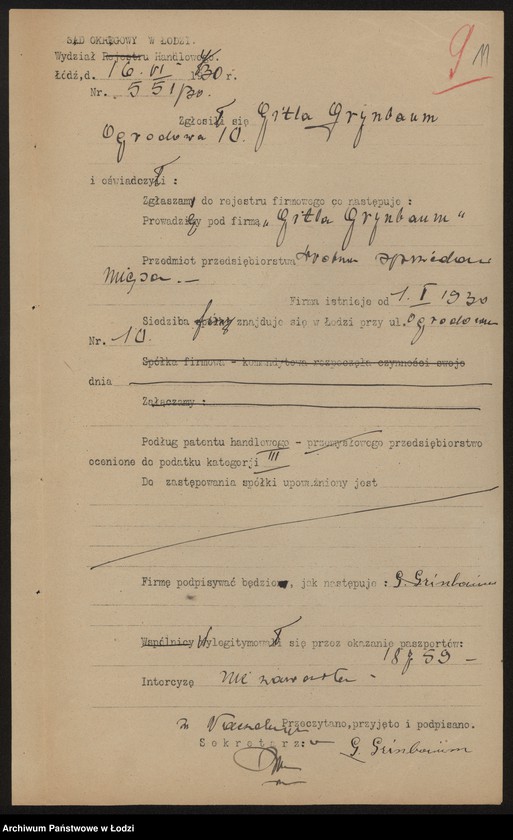 SĄD OKRĘGOWY W ŁODZI.
Wydział Rejestru Handlowego.
Łódź, d. 16. VI 1930 r.
Nr. 551/30.
9 11
Zgłosił się Gitla Grynbaum
Ogrodowa 10.
i oświadczył :
Zgłaszam do rejestru firmowego co następuje :
Prowadzę pod firmą "Gitla Grynbaum"
Przedmiot przedsiębiorstwa drobna sprzedaż
mięsa. —
Firma istnieje od 1. I 1930
Siedziba firmy znajduje się w Łodzi przy ul. Ogrodowa
Nr. 10.
Spółka firmowa - komandytowa rozpoczęła czynności swoje
dnia
Załączamy :
Podług patentu handlowego - przemysłowego przedsiębiorstwo
ocenione do podatku kategorji III
Do zastępowania spółki upoważniony jest
Firmę podpisywać będzie, jak następuje : G. Grinbaum
Wspólnicy wylegitymował się przez okazanie paszportów:
18759 —
Intercyzę nie zawarła -
Przeczytano, przyjęto i podpisano.
Sekretarz:
G. Grinbaum
Archiwum Państwowe w Łodzi